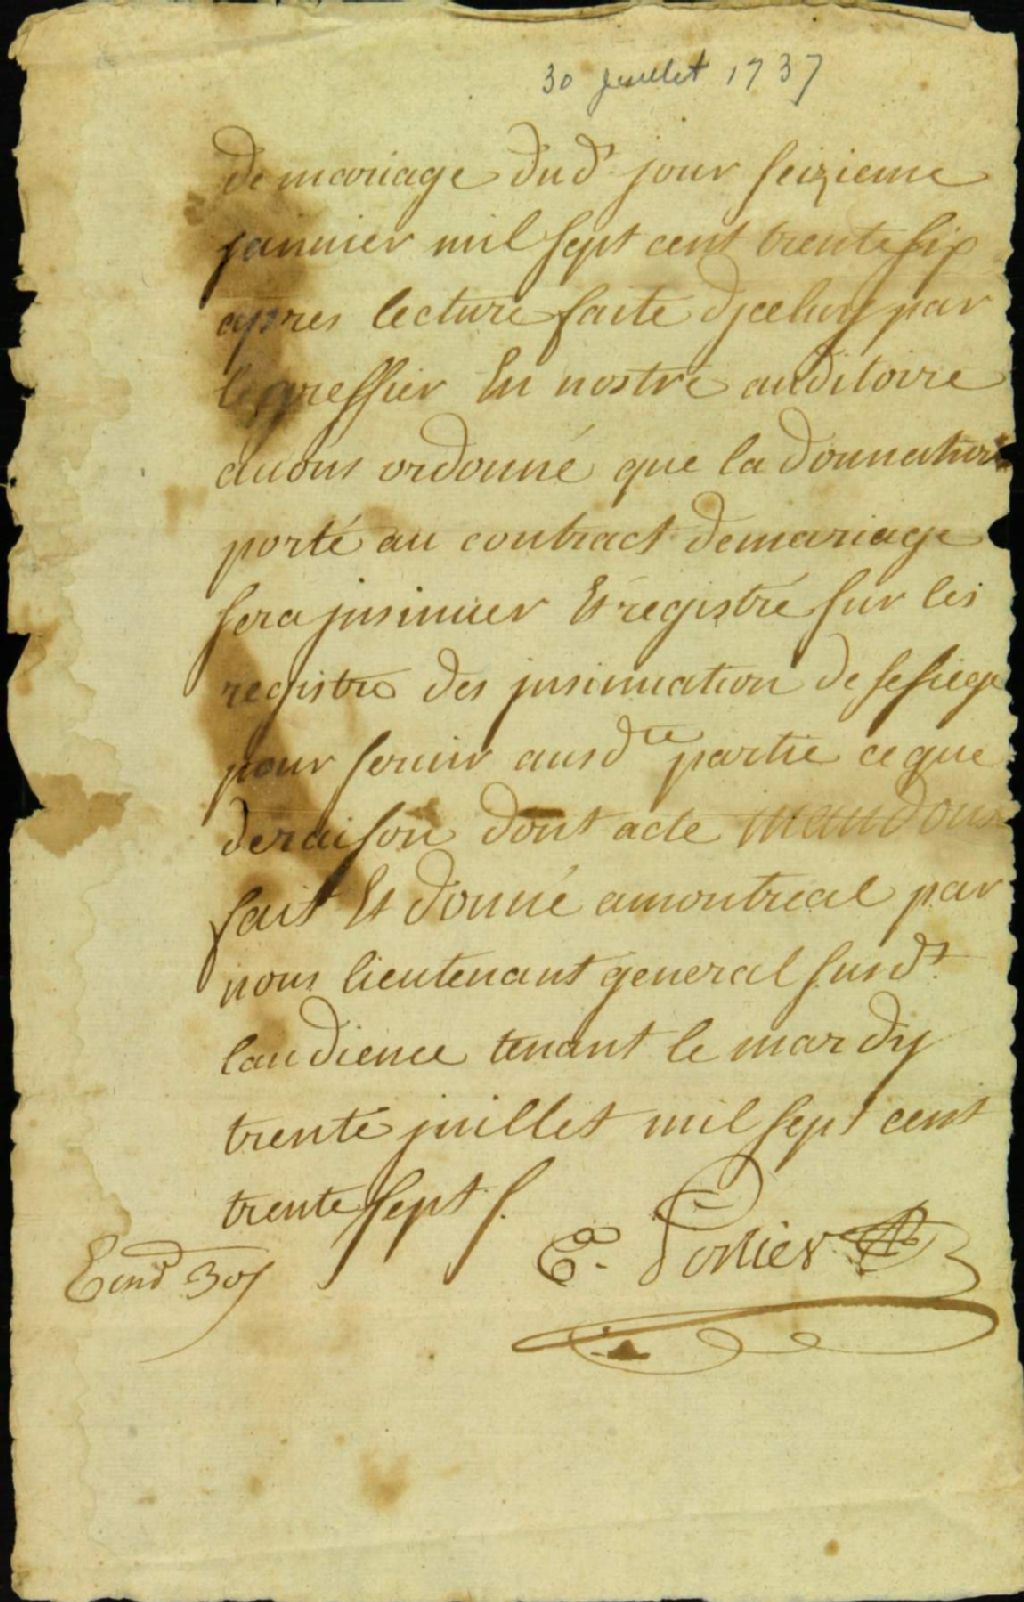 30 Juillet 1737
de mariage dud.t jour seizieme
januier mil sept cent trente six
apres lecture faite djceluy par
le greffier En nostre auditoire
auons ordonné que la donnation
porté au contract de mariage
sera jnsinuer Et registré sur les
registre des jnsinuation de se siege
pour seruir ausd.te partie ce que
de raison dont acte mandons
fait Et donné a montreal par
nous lieutenant general susd.t
laudience tenant le mardy
trente juillet mil sept cent
trente sept /.
C.a Porlier
30s